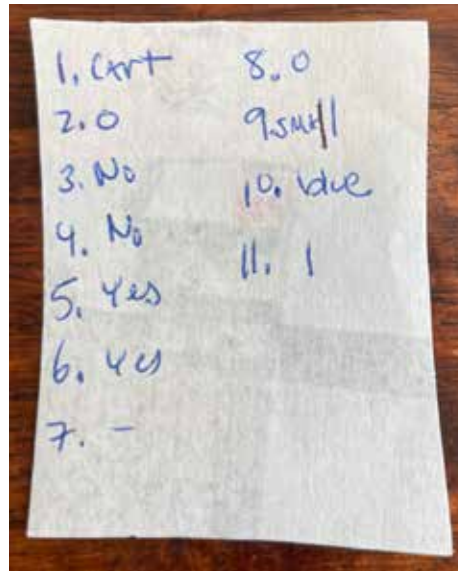 1. Cart
2. 0
3. No
4. No
5. Yes
6. Yes
7. -
8. 0
9. small
10. blue
11. 1